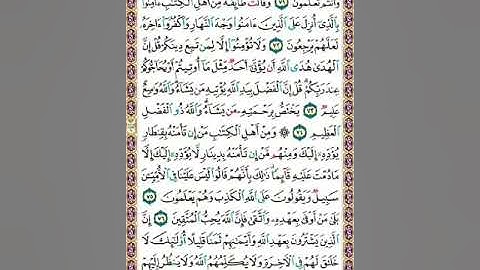 وَأَنتُمْ تَعْلَمُونَ ٧١ وَقَالَت طَّآئِفَةٌ مِّنْ أَهْلِ ٱلْكِتَٰبِ ءَامِنُوا۟
بِٱلَّذِىٓ أُنزِلَ عَلَى ٱلَّذِينَ ءَامَنُوا۟ وَجْهَ ٱلنَّهَارِ وَٱكْفُرُوٓا۟ ءَاخِرَهُۥ
لَعَلَّهُمْ يَرْجِعُونَ ٧٢ وَلَا تُؤْمِنُوٓا۟ إِلَّا لِمَن تَبِعَ دِينَكُمْ قُلْ إِنَّ
ٱلْهُدَىٰ هُدَى ٱللَّهِ أَن يُؤْتَىٰٓ أَحَدٌ مِّثْلَ مَآ أُوتِيتُمْ أَوْ يُحَآجُّوكُمْ
عِندَ رَبِّكُمْ قُلْ إِنَّ ٱلْفَضْلَ بِيَدِ ٱللَّهِ يُؤْتِيهِ مَن يَشَآءُ وَٱللَّهُ وَٰسِعٌ
عَلِيمٌ ٧٣ يَخْتَصُّ بِرَحْمَتِهِۦ مَن يَشَآءُ وَٱللَّهُ ذُو ٱلْفَضْلِ
ٱلْعَظِيمِ ٧٤ ۞ وَمِنْ أَهْلِ ٱلْكِتَٰبِ مَنْ إِن تَأْمَنْهُ بِقِنطَارٍ
يُؤَدِّهِۦٓ إِلَيْكَ وَمِنْهُم مَّنْ إِن تَأْمَنْهُ بِدِينَارٍ لَّا يُؤَدِّهِۦٓ إِلَيْكَ إِلَّا
مَا دُمْتَ عَلَيْهِ قَآئِمًا ذَٰلِكَ بِأَنَّهُمْ قَالُوا۟ لَيْسَ عَلَيْنَا فِى ٱلْأُمِّيِّۦنَ
سَبِيلٌ وَيَقُولُونَ عَلَى ٱللَّهِ ٱلْكَذِبَ وَهُمْ يَعْلَمُونَ ٧٥
بَلَىٰ مَنْ أَوْفَىٰ بِعَهْدِهِۦ وَٱتَّقَىٰ فَإِنَّ ٱللَّهَ يُحِبُّ ٱلْمُتَّقِينَ ٧٦ إِنَّ
ٱلَّذِينَ يَشْتَرُونَ بِعَهْدِ ٱللَّهِ وَأَيْمَٰنِهِمْ ثَمَنًا قَلِيلًا أُو۟لَٰٓئِكَ لَا
خَلَٰقَ لَهُمْ فِى ٱلْءَاخِرَةِ وَلَا يُكَلِّمُهُمُ ٱللَّهُ وَلَا يَنظُرُ إِلَيْهِمْ